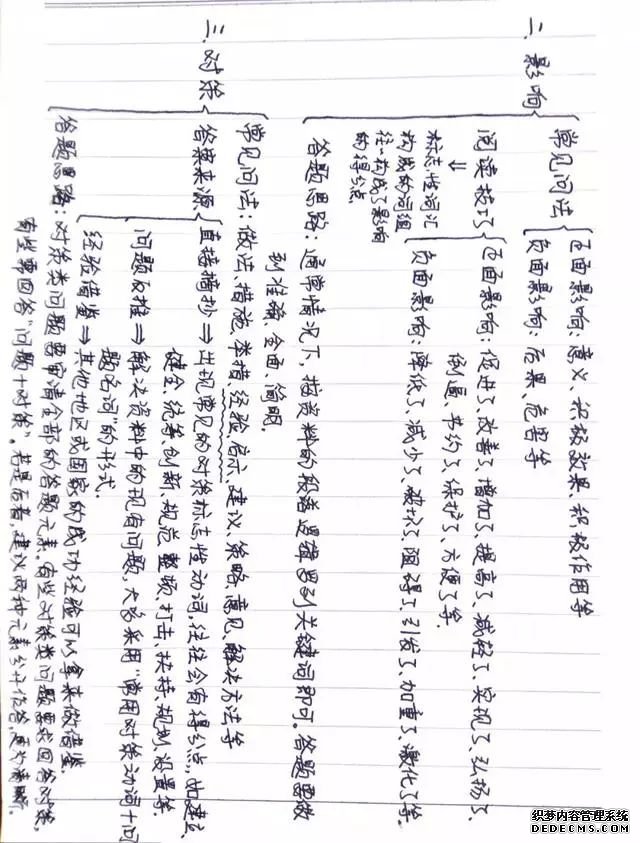 二、影响
常见问法
正面影响：意义、积极效果、积极作用等
负面影响：后果、危害等
阅读技巧
⇓
标志性词汇
构成的词组
往往构成了影响
的得分点
正面影响：促进了、改善了、增加了、提高了、减轻了、实现了、弘扬了、
倒逼、节约了、保护了、方便了等.
负面影响：降低了、减少了、破坏了、阻碍了、引发了、加重了、激化了等.
答题思路：通常情况下，按资料的段落逻辑罗列关键词即可。答题要做
到准确、全面、简明.
三、对策
常见问法：做法、措施、举措、经验、启示、建议、策略、意见、解决方法等
答案来源
直接摘抄⇒出现常见的对策标志性动词，往往会有得分点，如建立、
健全、统筹、创新、规范、整顿、打击、扶持、规划、设置等.
问题反推⇒解决资料中的现有问题，大多采用"常用对策动词+问
题名词"的形式.
经验借鉴⇒其他地区或国家的成功经验可以拿来做借鉴.
答题思路：对策类问题要审清全部的答题元素.有些对策类问题要求回答对策，
有些要回答"问题+对策"。若是后者，建议两种元素分开作答，更为清晰.
织梦内容管理系统
DEDECMS.COM